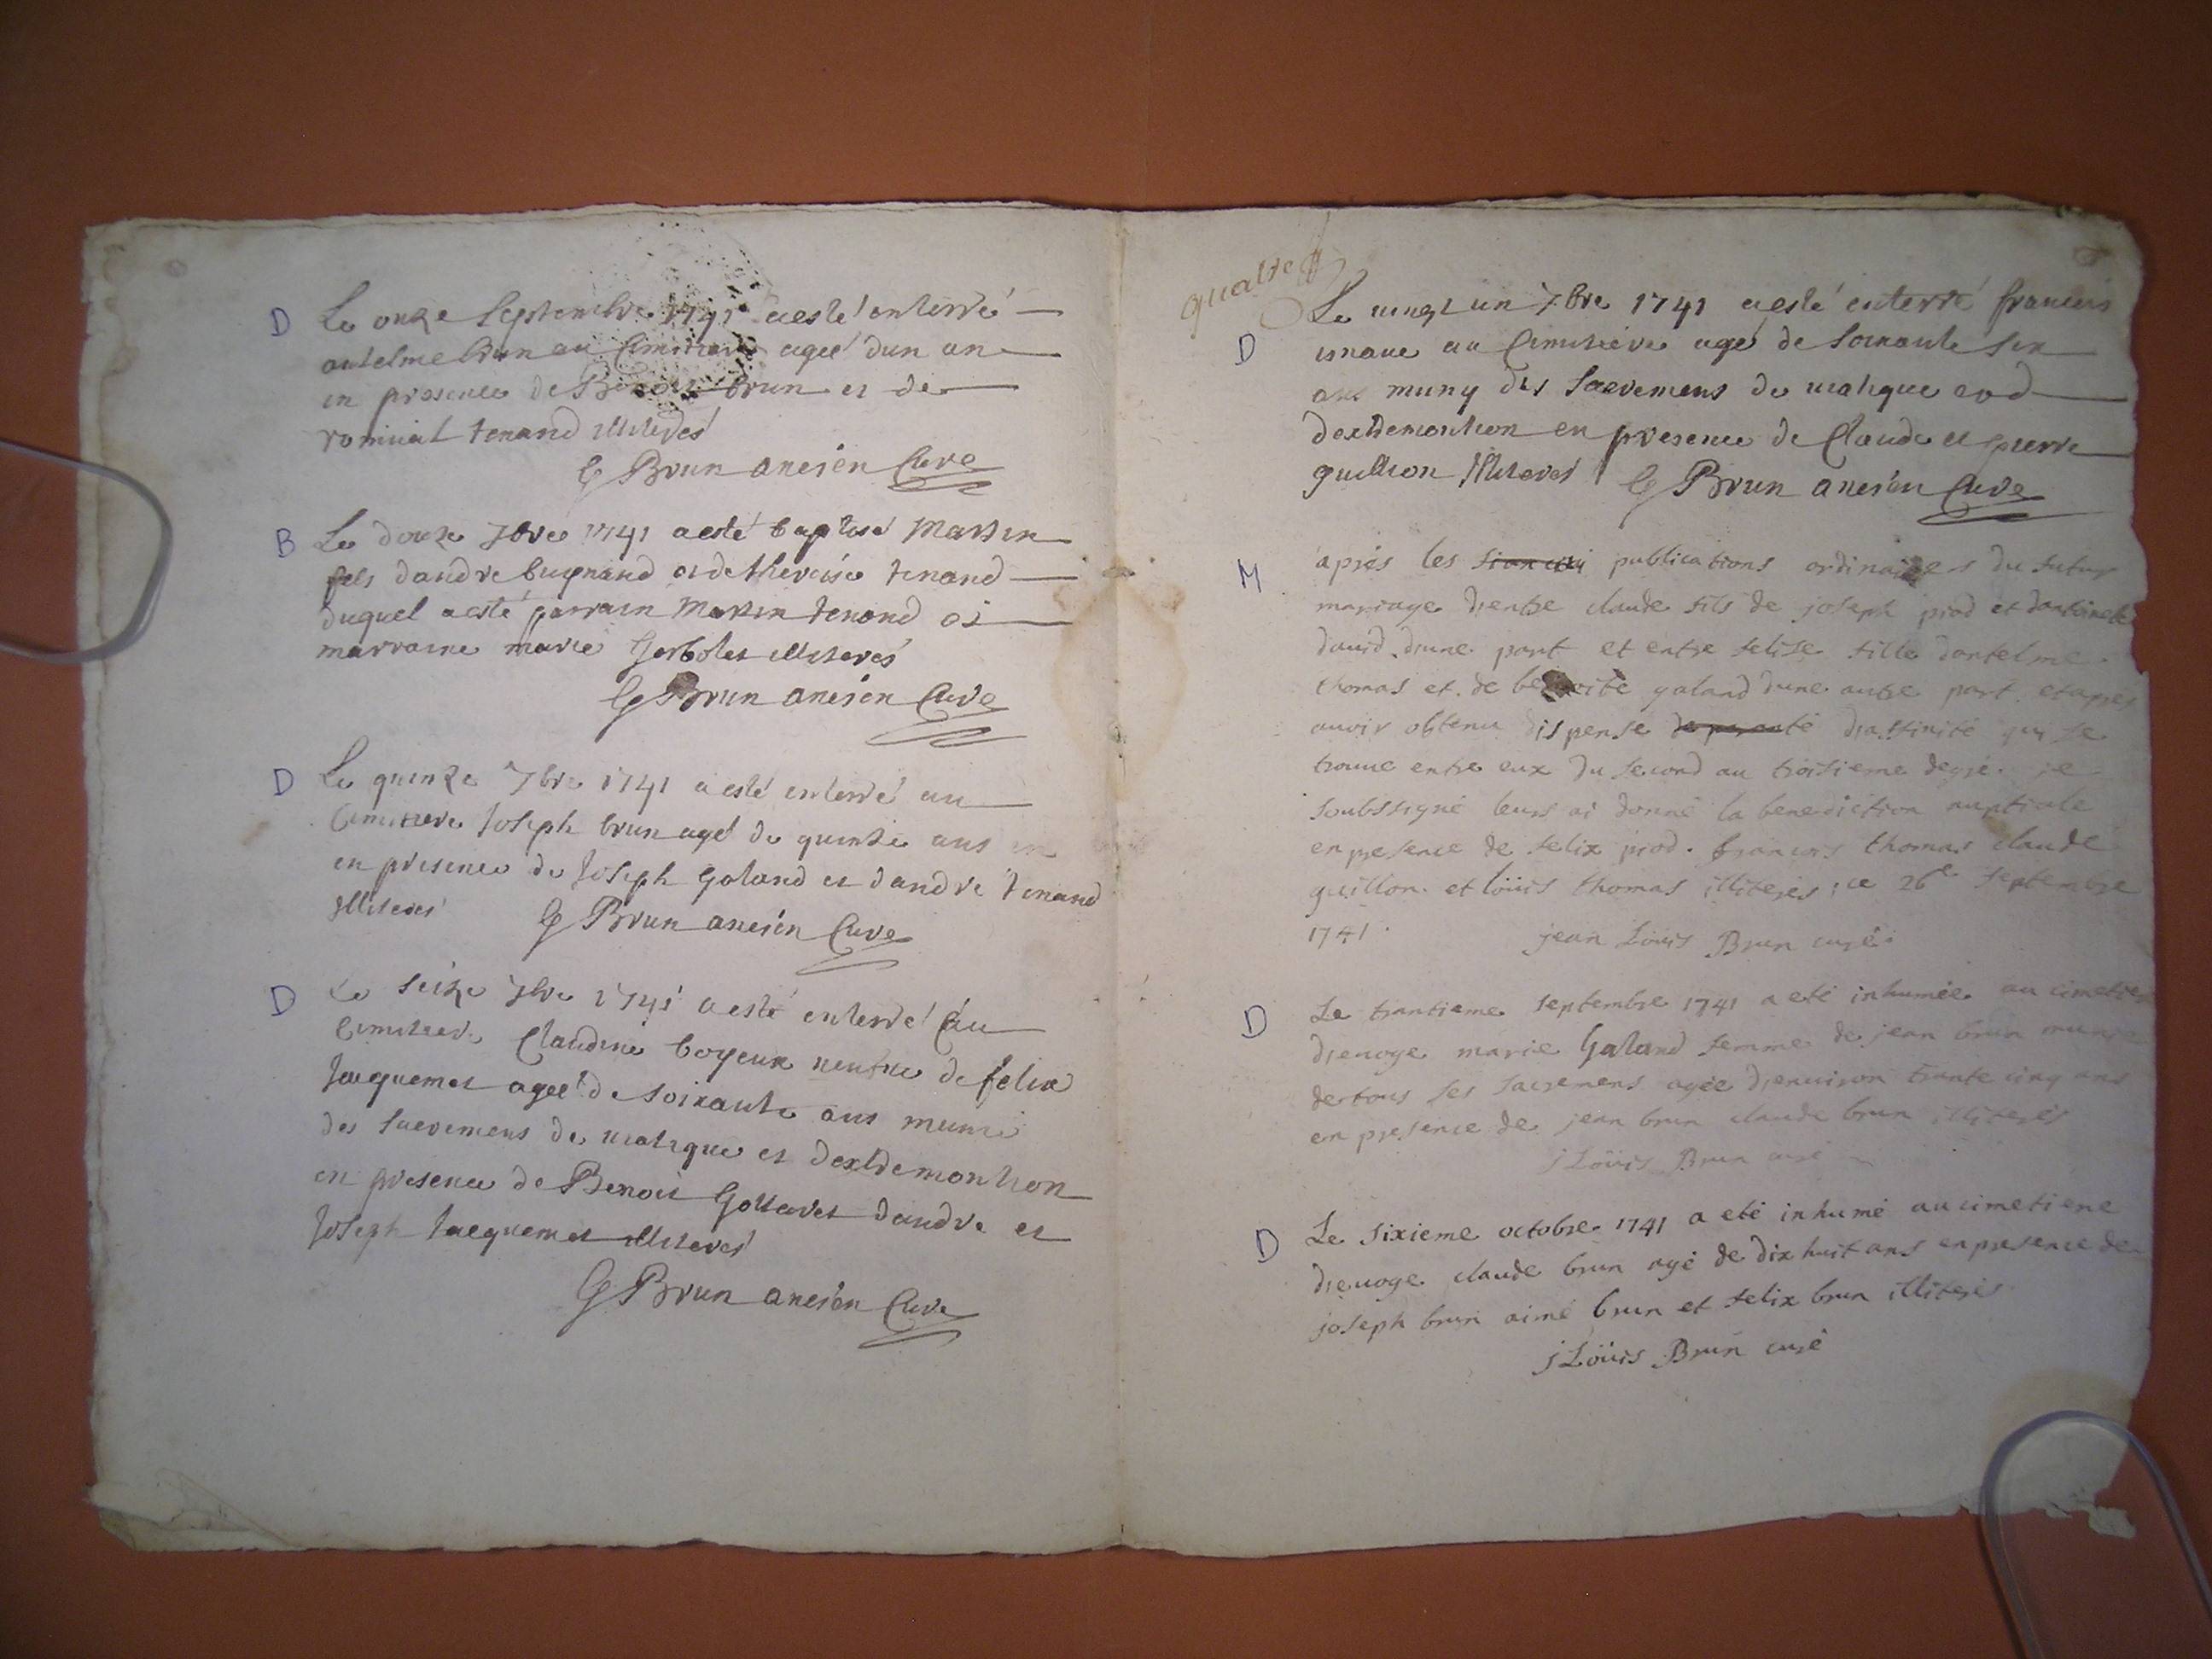 D
Le onze Septembre 1741 a esté enterré
antelme brun au Cimitiere agee d'un an
en presence de Benoit brun et de
romuial tenand illiterés
G Brun ancien Curé
B
Le douze 7bre 1741 a esté baptisé Martin
fils dandre bugnand et de therese tenand
duquel a esté parrain Martin tenand et
marraine marie Gerbolet illiterés
G Brun ancien Curé
D
Le quinze 7bre 1741 a esté enterré au
Cimitiere Joseph brun agé de quinze ans
en presence de Joseph Goland et dandre tenand
Illiterés G Brun ancien Curé
D
Le seize 7bre 1741 a esté enterré au
Cimitiere Claudine boyeux veufve de felix
Jacquemet agee de soixante ans munie
des sacremens de viatique et dextremontion
en presence de Benoit Gottaret dandre et
Joseph Jacquemet illiterés
G Brun ancien Curé
quatre
D
Le vingt un 7bre 1741 a esté enterré francois
au Cimitiere agé de soixante six
ans muny des sacremens de viatique et d
dextremontion en presence de Claude et pierre
guillion Illiterés G Brun ancien Curé
M
après les publications ordinaires du futur
mariage d'entre claude fils de joseph piod et dantoinete
david d'une part et entre felise fille dantelme
thomas et de benoite galand d'une autre part et apres
avoir obtenu dispense de parenté d'affinité qui se
trouve entre eux du second au troisieme degré je
soubssigné leurs ai donné la benediction nuptiale
en presence de felix piod. francois thomas claude
guillon et loüis thomas illiterés ce 26e septembre
1741. jean Loüis Brun curé
D
Le trantieme septembre 1741 a eté inhumée au cimetiere
d'evoge marie Galand femme de jean brun munie
de tous ses sacremens agée d'environ trante cinq ans
en presence de jean brun claude brun illiterés
j Loüis Brun curé
D
Le sixieme octobre 1741 a eté inhumé au cimetiere
d'evoge claude brun agé de dix huit ans en presence de
joseph brun aimé brun et felix brun illiterés
j Loüis Brun curé